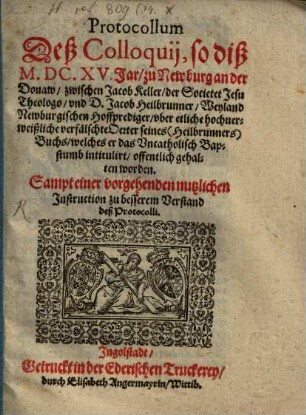 H. ref. 809 (14. x
Protocollum
Deß Colloquij, so diß
M. DC. XV. Jar/ zu Newburg an der
Donaw/ zwischen Jacob Keller/ der Societet Jesu
Theologo/ vnd D. Jacob Heilbrunner/ Weyland
Newburgischen Hoffprediger/ vber etliche hochuer-
weißliche verfälschte Oerter seines (Heilbrunners)
Buchs/ welches er das Vncatholisch Bap-
stumb intitulirt/ offentlich gehal-
ten worden.
Sampt einer vorgehenden nutzlichen
Instruction zu besserem Verstand
deß Protocolli.
Ingolstadt/
Getruckt in der Ederischen Truckerey/
durch Elisabeth Angermayrin/ Wittib.